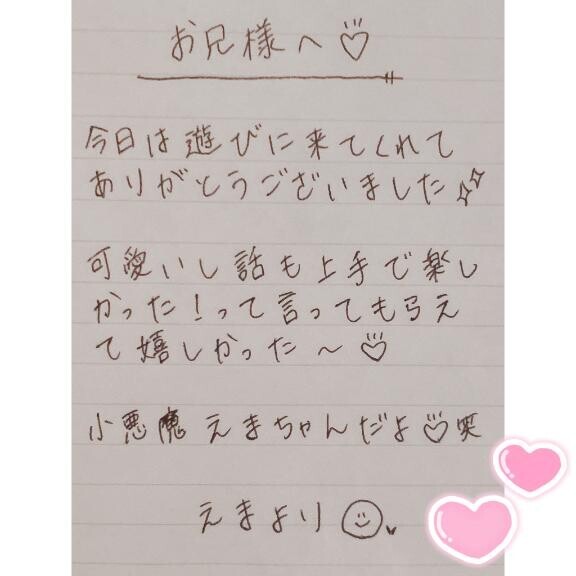 お兄様へ♡
今日は遊びに来てくれて
ありがとうございました✨
可愛いし話も上手で楽し
かった！って言っても弓え
て嬉しかった～♡
小悪魔えまちゃんだよ♡笑
えまより☺